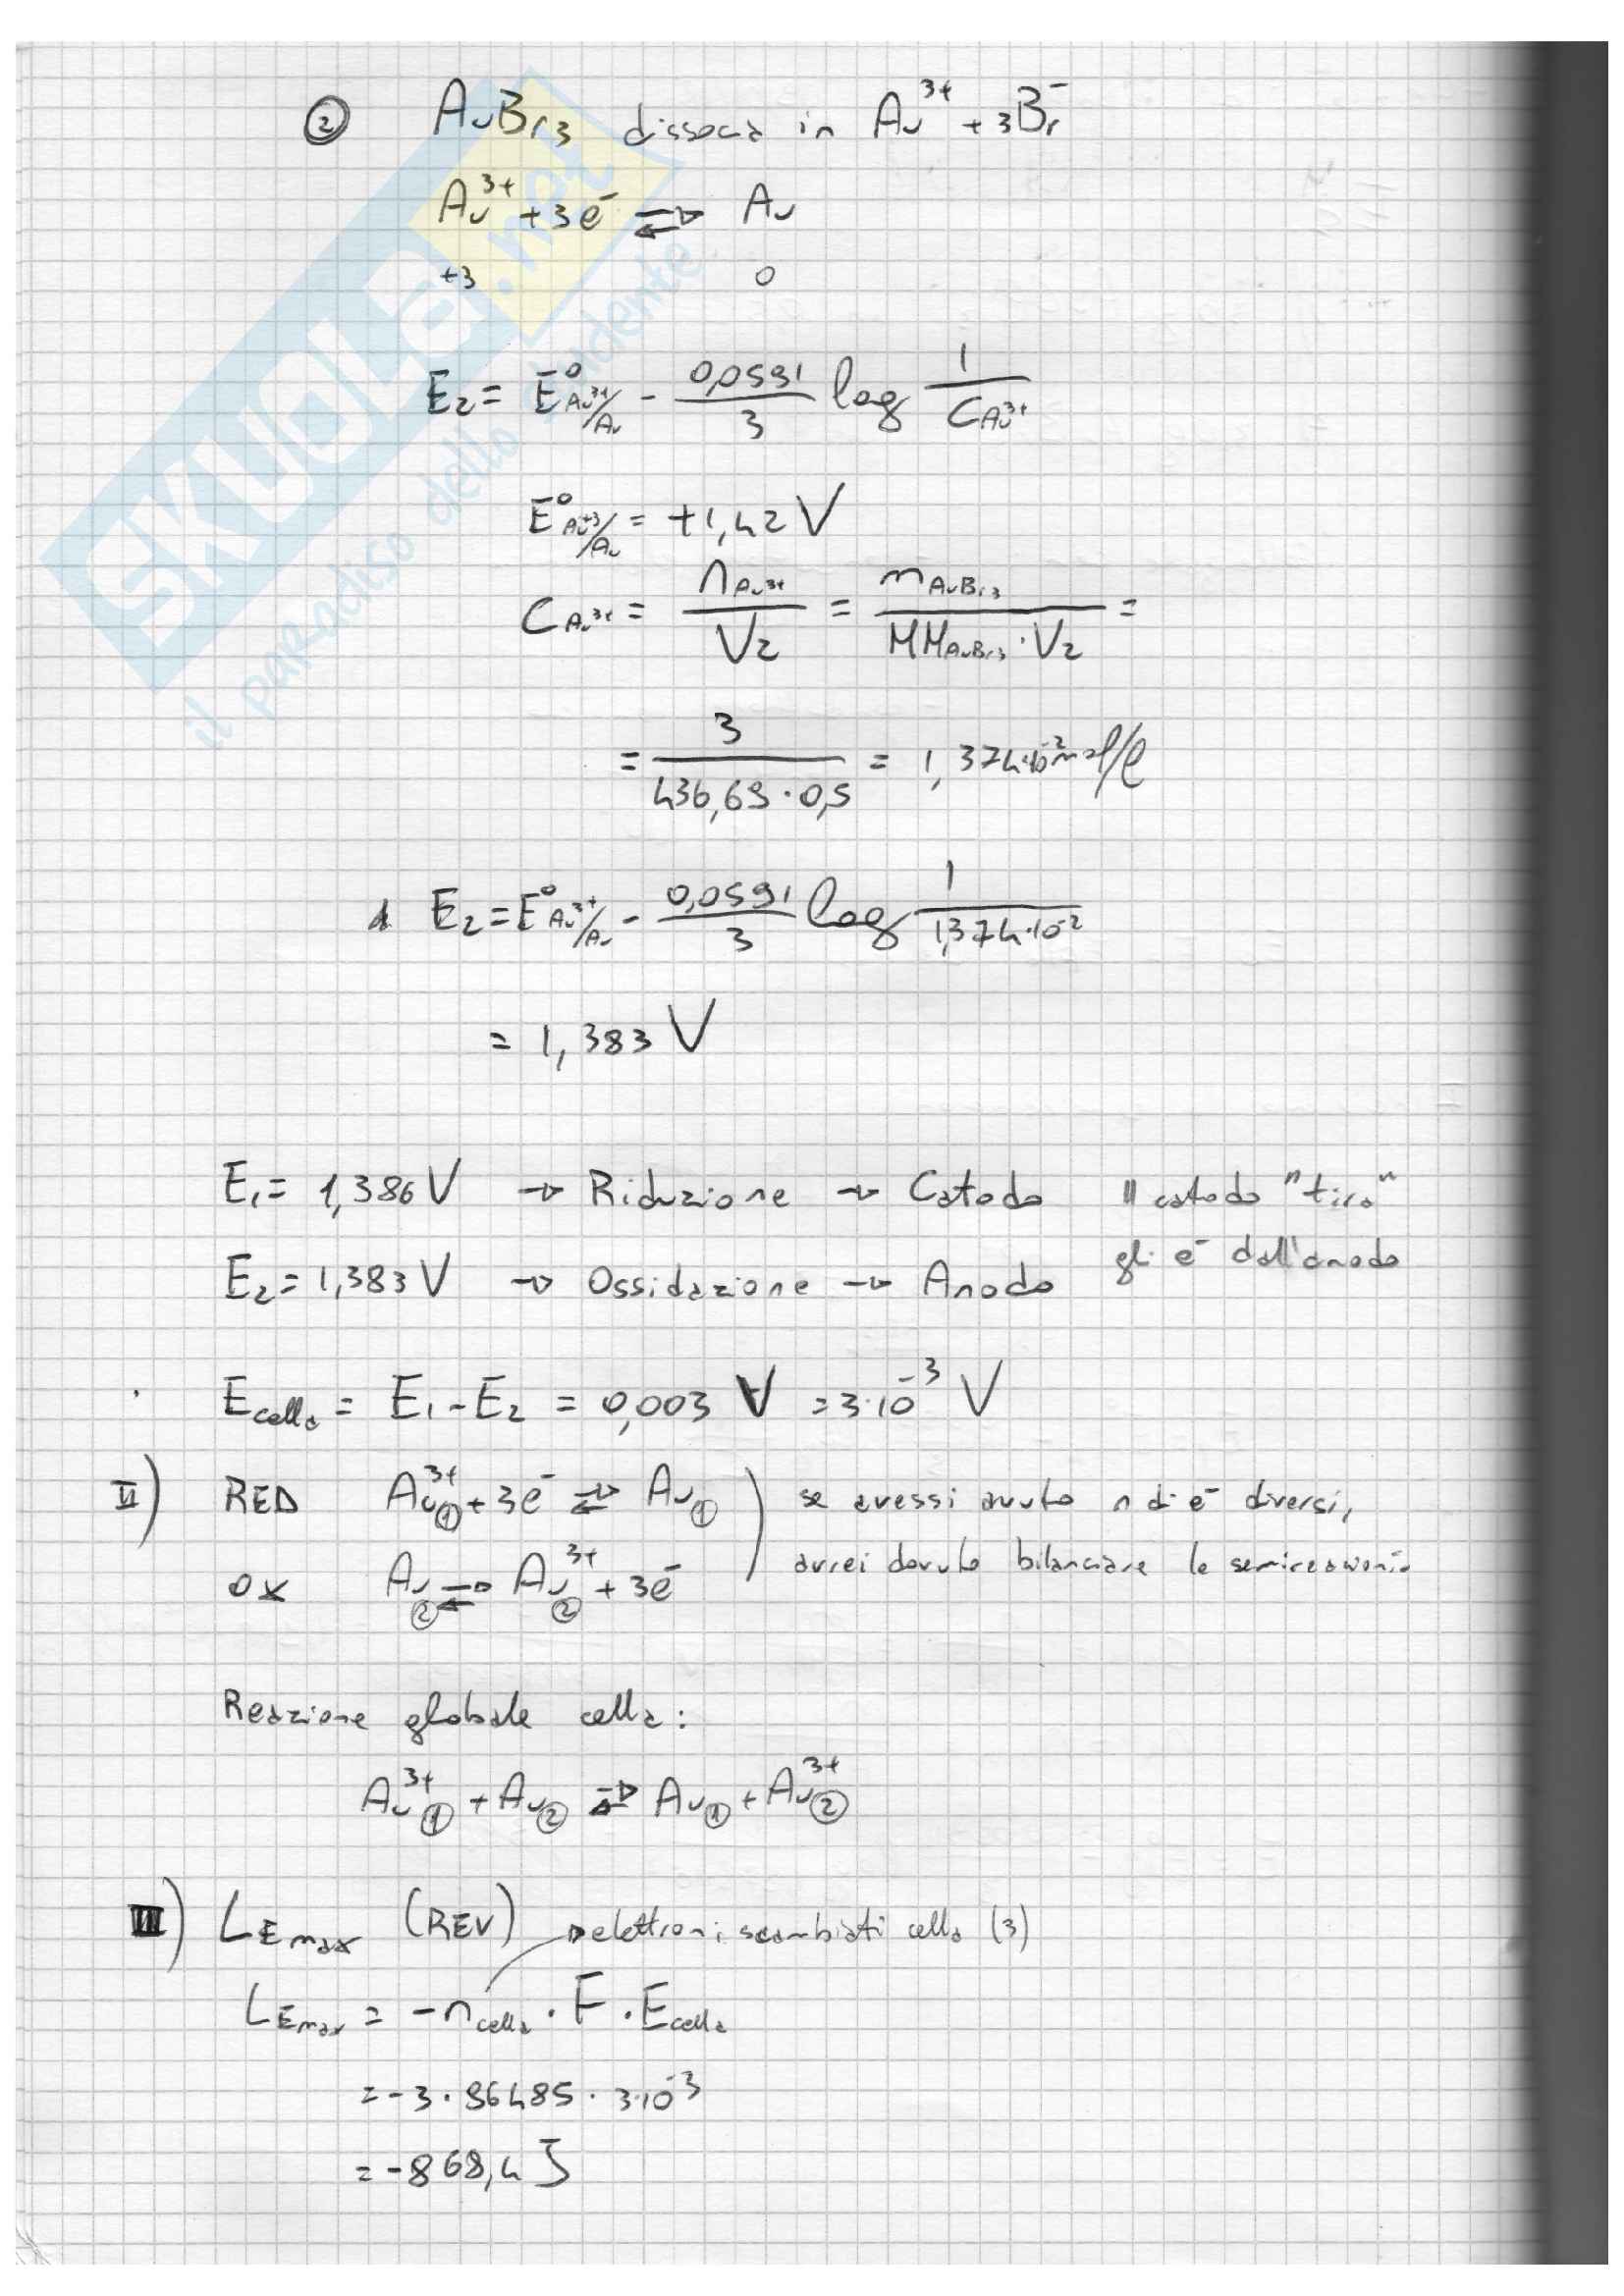 ② AuBr3 dissocia in Au3+ + 3Br-
Au3+ + 3e- ⇌ Au
+3 0
E2 = E°Au3+/Au - 0,0591/3 log 1/CAu3+
E°Au+3/Au = +1,42 V
CAu3+ = nAu3+/V2 = mAuBr3/MMAuBr3·V2 =
= 3/436,69·0,5 = 1,374·10-2 mol/l
E2 = E°Au3+/Au - 0,0591/3 log 1/1,374·10-2
= 1,383 V
E1 = 1,386 V → Riduzione → Catodo Il catodo "tira"
gli e- dall'anodo
E2 = 1,383 V → Ossidazione → Anodo
Ecella = E1 - E2 = 0,003 V = 3·10-3 V
II) RED Au3+① + 3e- ⇌ Au① ) se avessi avuto n di e- diversi,
OX Au② ⇌ Au3+② + 3e- avrei dovuto bilanciare le semireazioni
Reazione globale cella:
Au3+① + Au② ⇌ Au① + Au3+②
III) LEmax (REV) → elettroni scambiati cella (3)
LEmax = -ncella · F · Ecella
= -3 · 96485 · 3·10-3
= -868,4 J
SKUOLA.net
il paradiso dello studente